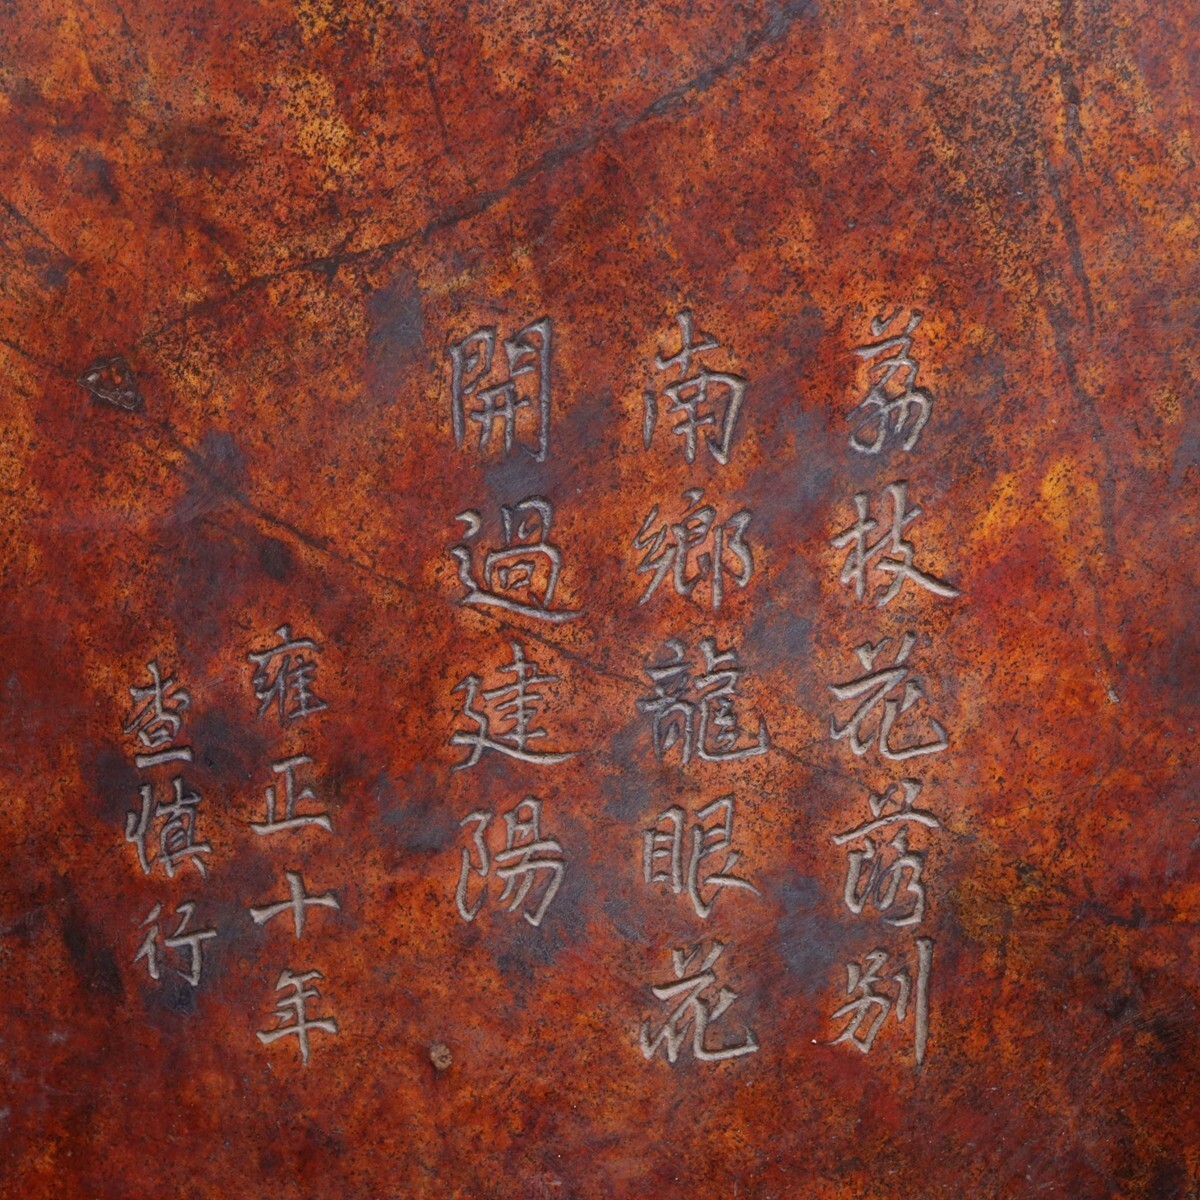 荔枝花落别
南鄉龍眼花
開過建陽
雍正十年
查慎行